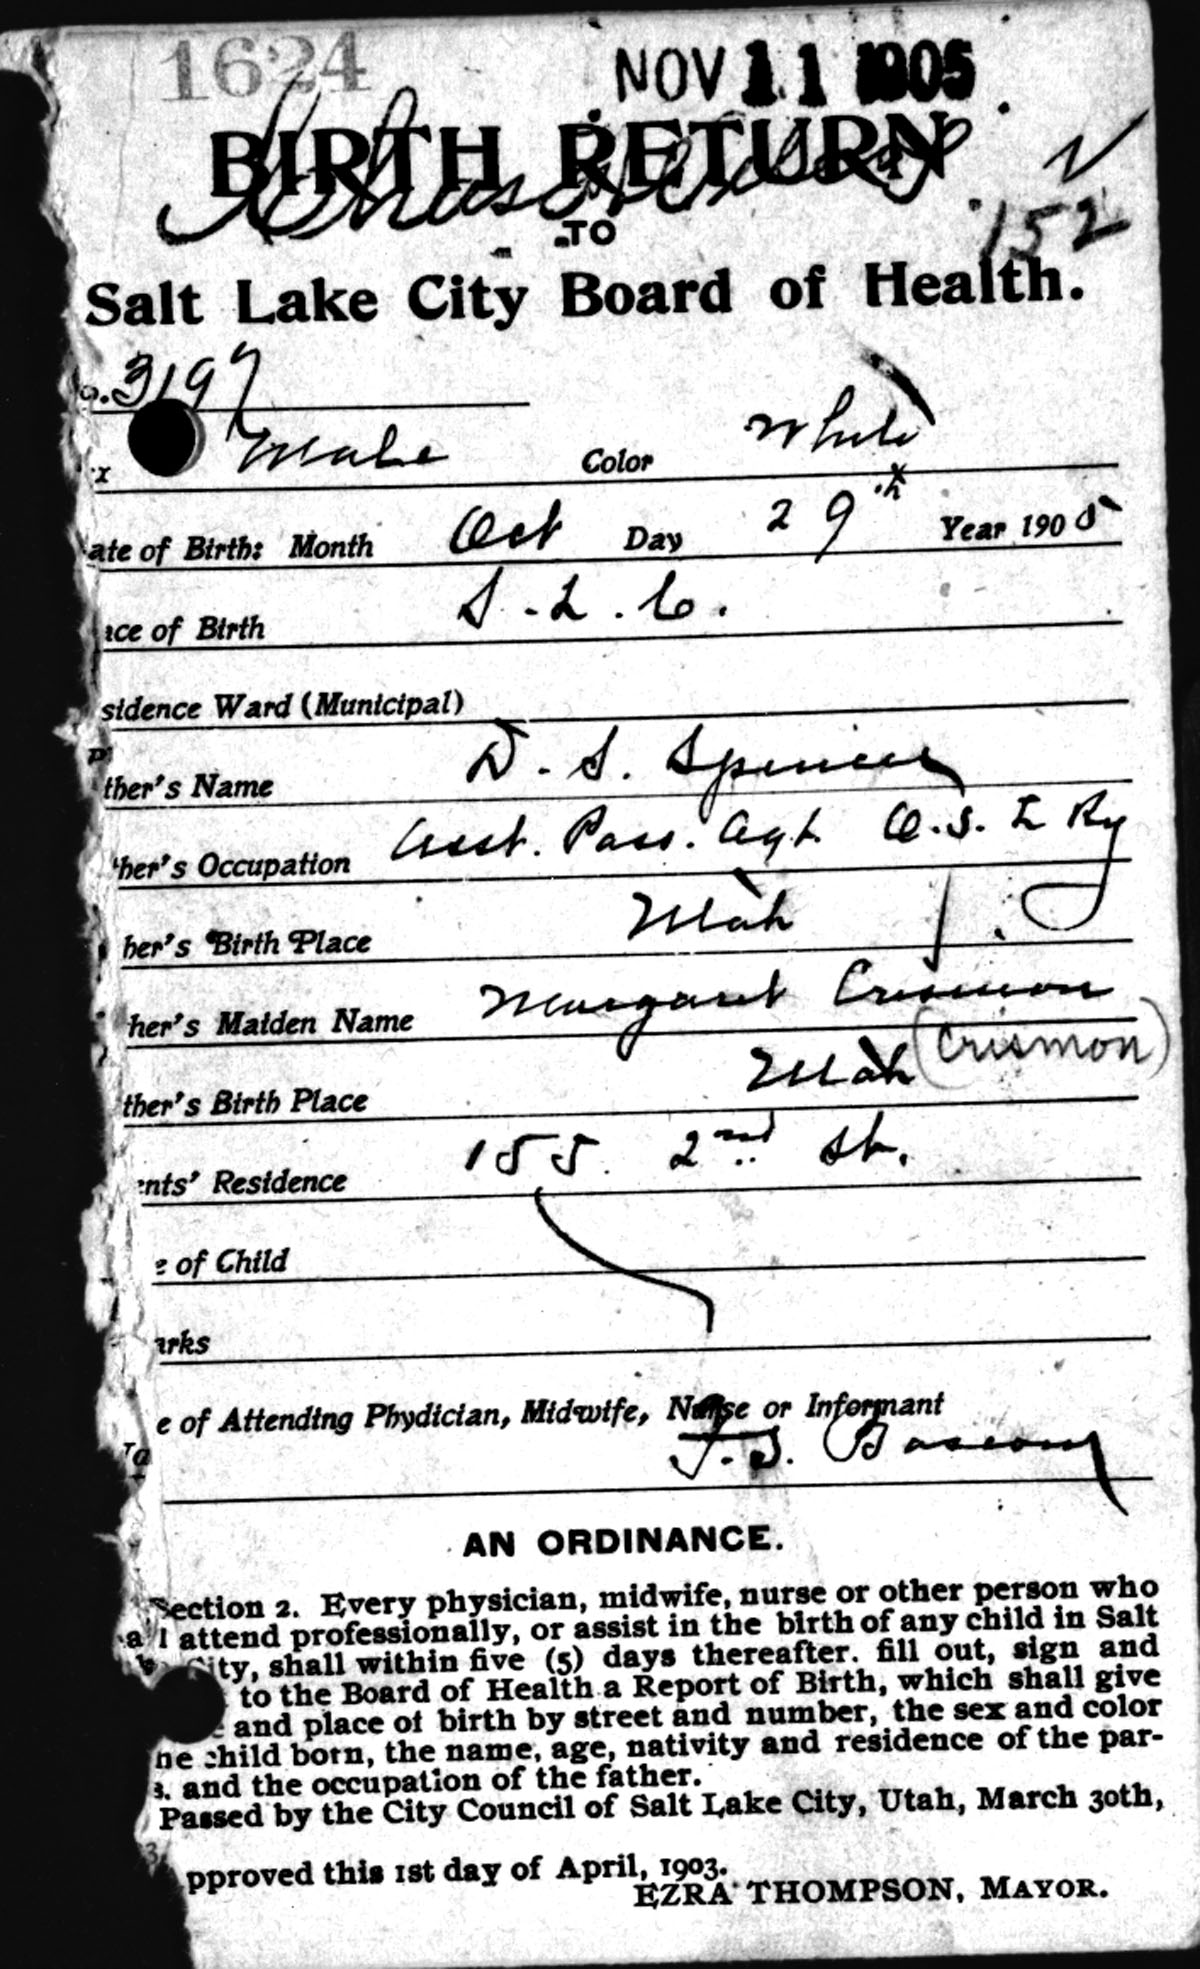 1624
NOV 11 1905
BIRTH RETURN
152
TO
Salt Lake City Board of Health.
o. 3197
x Male Color White
ate of Birth: Month Oct Day 29th Year 1905
ace of Birth S. L. C.
sidence Ward (Municipal)
ther's Name D. S. Spencer
her's Occupation Asst. Pass. Agt. O. S. L Ry
her's Birth Place Utah
her's Maiden Name Margaret Crismon
(Crismon)
ther's Birth Place Utah
ents' Residence 155. 2nd St.
e of Child
arks
e of Attending Phydician, Midwife, Nurse or Informant
F. S. Bascom
AN ORDINANCE.
Section 2. Every physician, midwife, nurse or other person who
all attend professionally, or assist in the birth of any child in Salt
City, shall within five (5) days thereafter. fill out, sign and
to the Board of Health a Report of Birth, which shall give
e and place of birth by street and number, the sex and color
he child born, the name, age, nativity and residence of the par-
s. and the occupation of the father.
Passed by the City Council of Salt Lake City, Utah, March 30th,
3
pproved this 1st day of April, 1903.
EZRA THOMPSON, MAYOR.